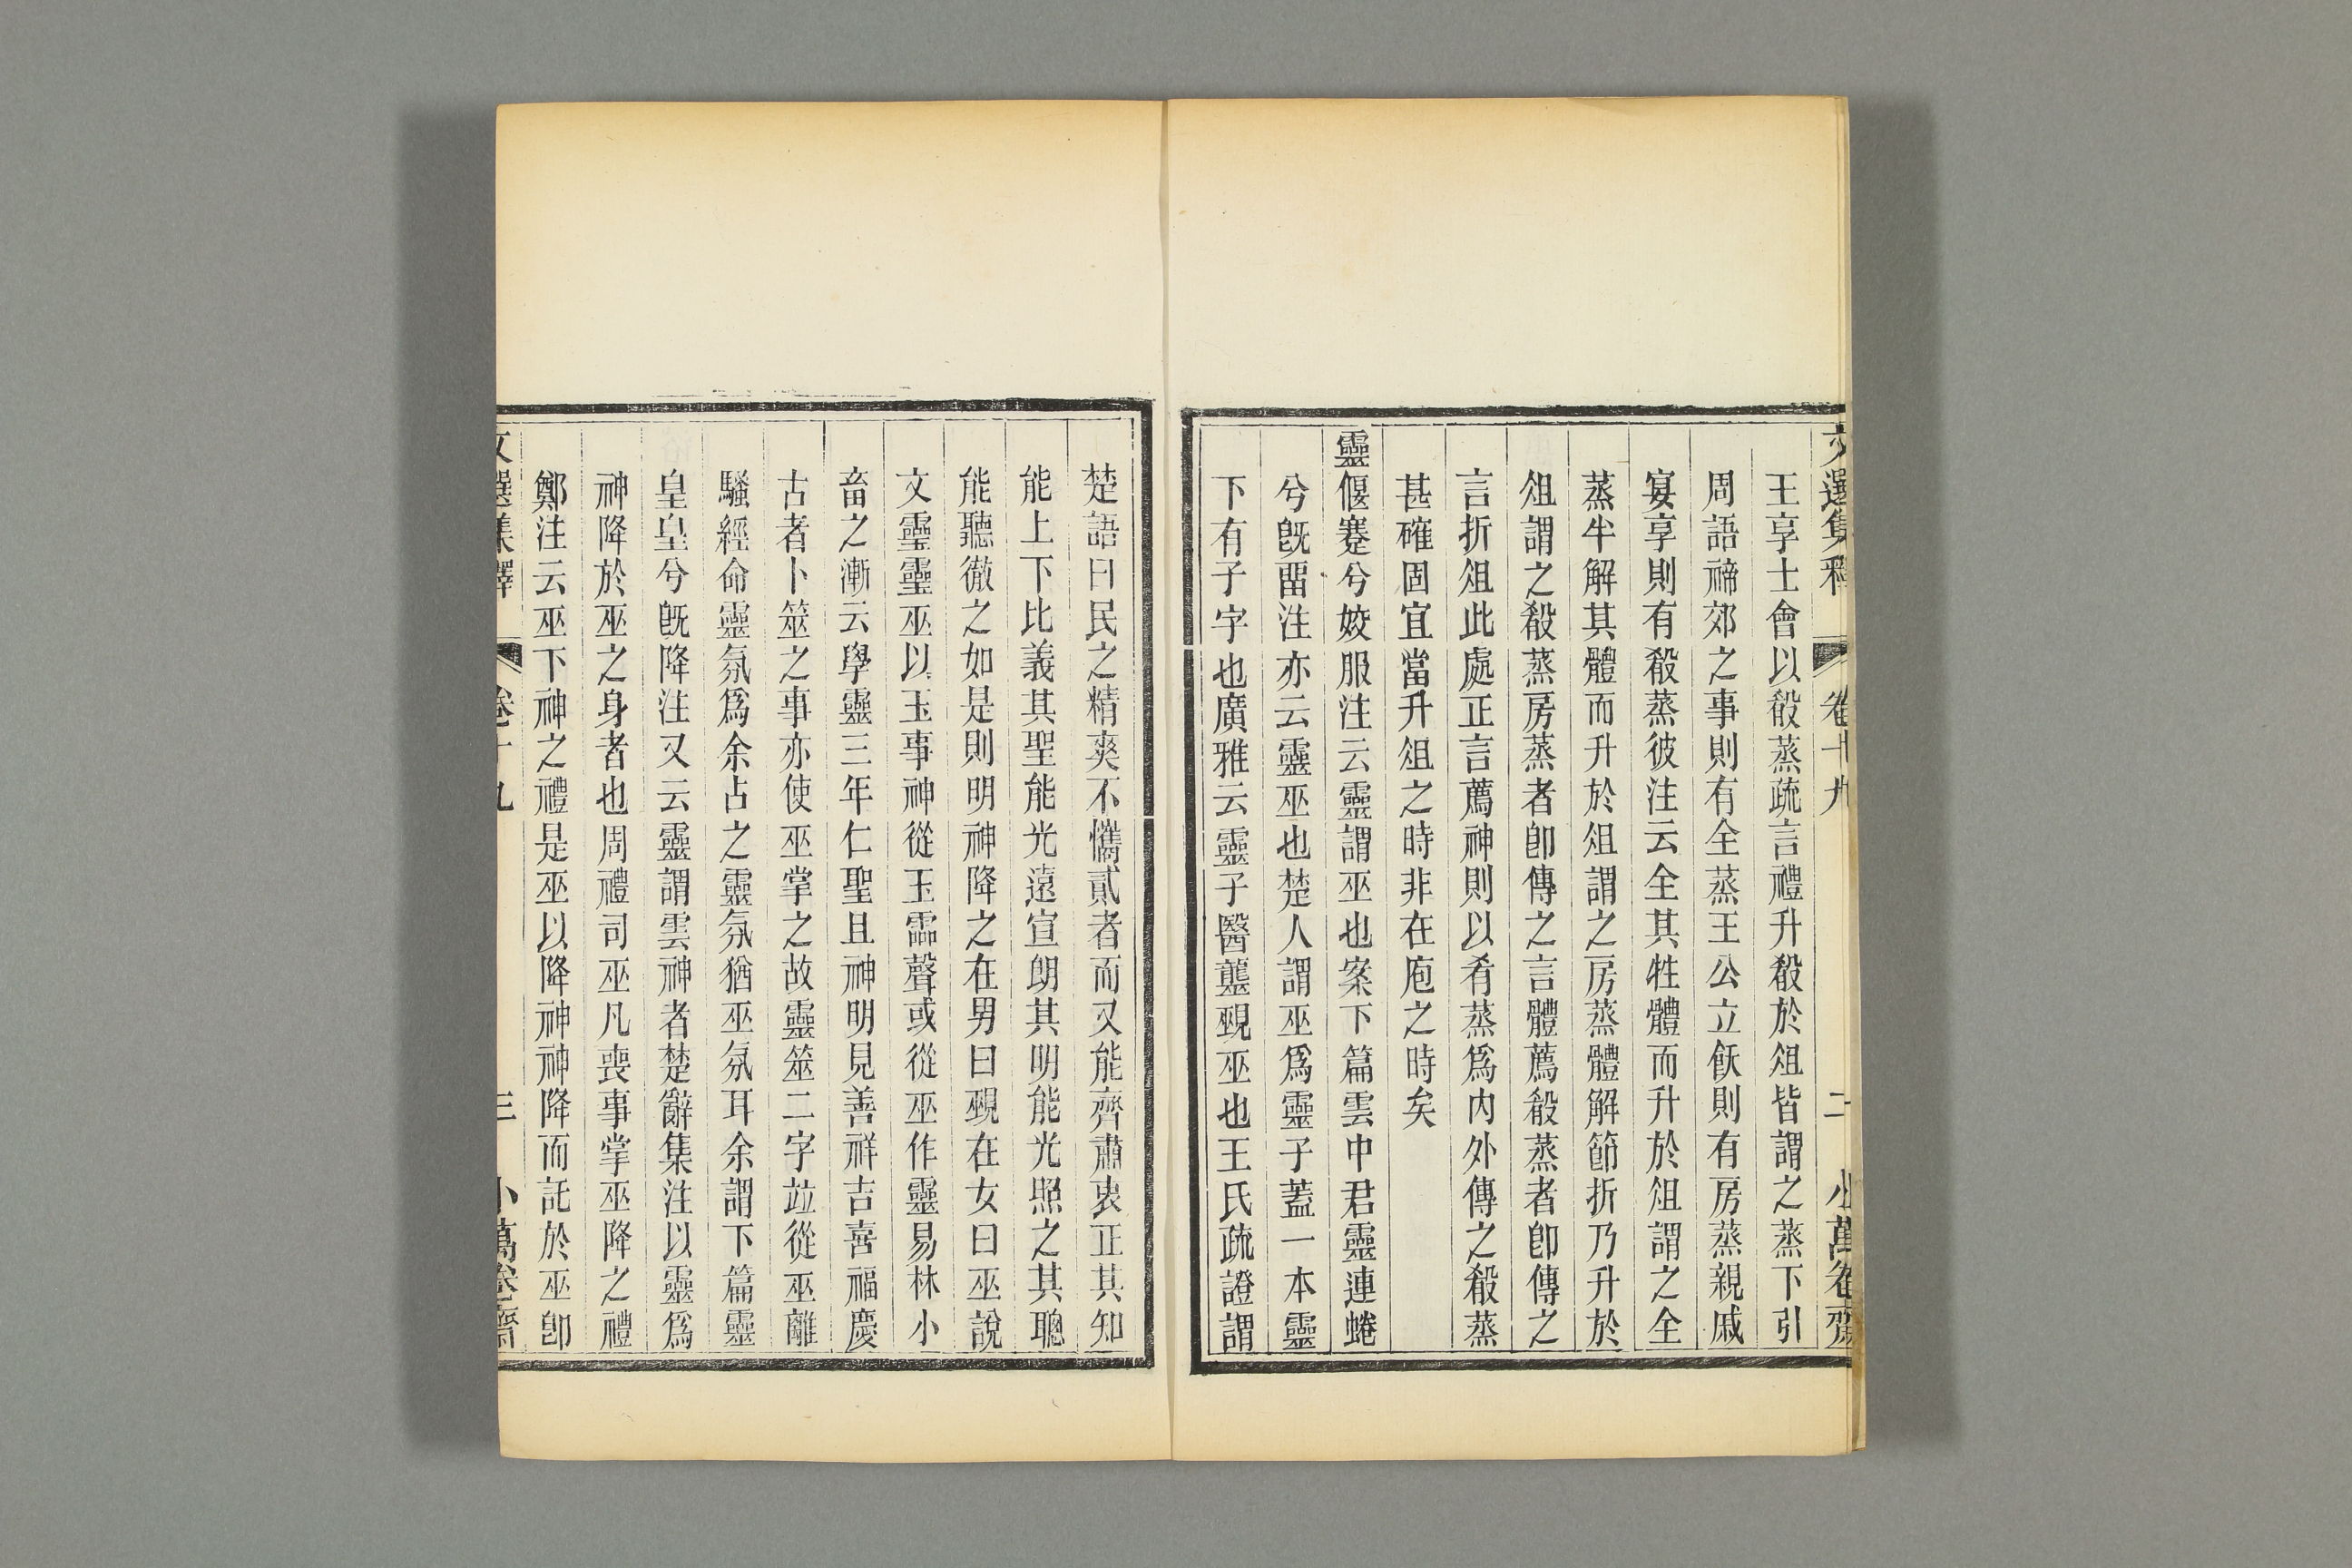 文選集釋 卷十九 二 小萬卷齋
王享士會以殽蒸疏言禮升殽於俎皆謂之蒸下引
周語禘郊之事則有全蒸王公立飫則有房蒸親戚
宴享則有殽蒸彼注云全其牲體而升於俎謂之全
蒸半解其體而升於俎謂之房蒸體解節折乃升於
俎謂之殽蒸房蒸者卽傳之言體薦殽蒸者卽傳之
言折俎此處正言薦神則以肴蒸爲内外傳之殽蒸
甚確固宜當升俎之時非在庖之時矣
靈偃蹇兮姣服注云靈謂巫也案下篇雲中君靈連蜷
兮旣畱注亦云靈巫也楚人謂巫爲靈子蓋一本靈
下有子字也廣雅云靈子醫䶬覡巫也王氏疏證謂
楚語曰民之精爽不懽貳者而又能齊肅衷正其知
能上下比義其聖能光遠宣朗其明能光照之其聰
能聽徹之如是則明神降之在男曰覡在女曰巫說
文靈靈巫以玉事神從玉霝聲或從巫作靈易林小
畜之漸云學靈三年仁聖且神明見善祥吉喜福慶
古者卜筮之事亦使巫掌之故靈筮二字竝從巫離
騷經命靈氛爲余占之靈氛猶巫氛耳余謂下篇靈
皇皇兮旣降注又云靈謂雲神者楚辭集注以靈爲
神降於巫之身者也周禮司巫凡喪事掌巫降之禮
鄭注云巫下神之禮是巫以降神神降而託於巫卽
文選集釋 卷十九 三 小萬卷齋